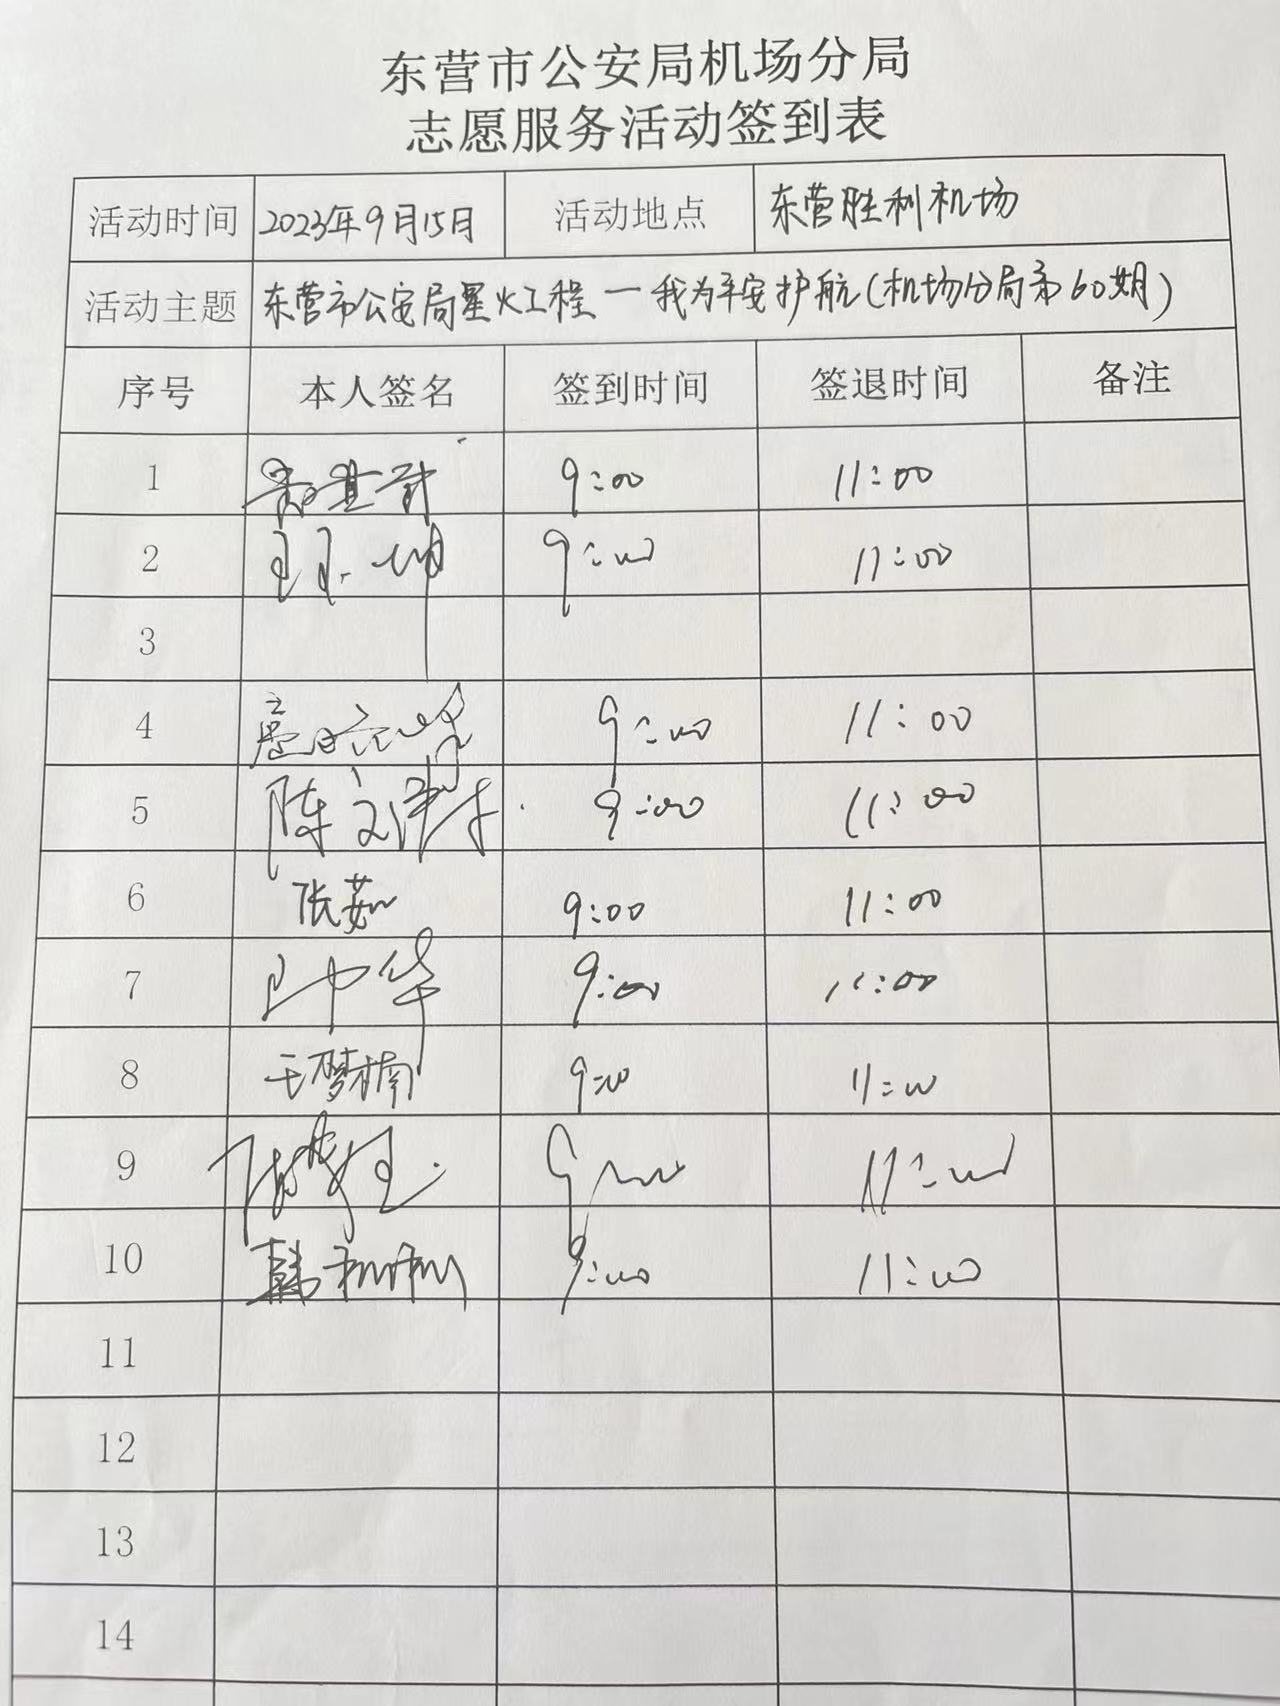 东营市公安局机场分局
志愿服务活动签到表
活动时间 2023年9月15日 活动地点 东营胜利机场
活动主题 东营市公安局星火工程一我为平安护航(机场分局第60期)
序号 本人签名 签到时间 签退时间 备注
1 9:00 11:00
2 9:00 11:00
3
4 9:00 11:00
5 陈文 9:00 11:00
6 张茹 9:00 11:00
7 王中华 9:00 11:00
8 王梦楠 9:00 11:00
9 11:00
10 韩 9:00 11:00
11
12
13
14